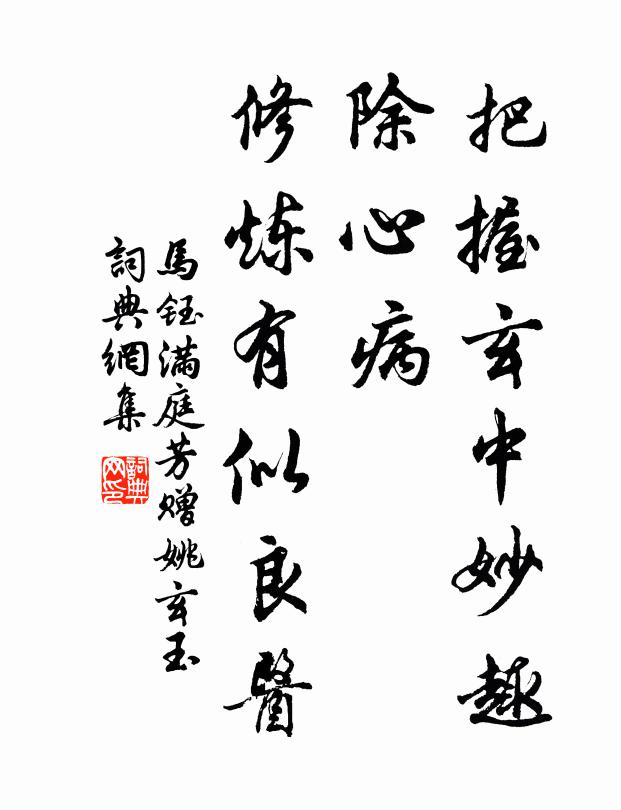 把握玄中妙趣
除心病
修炼有似良醫
馬鈺滿庭芳赠姚玄玉
詞典網集
詞典网印